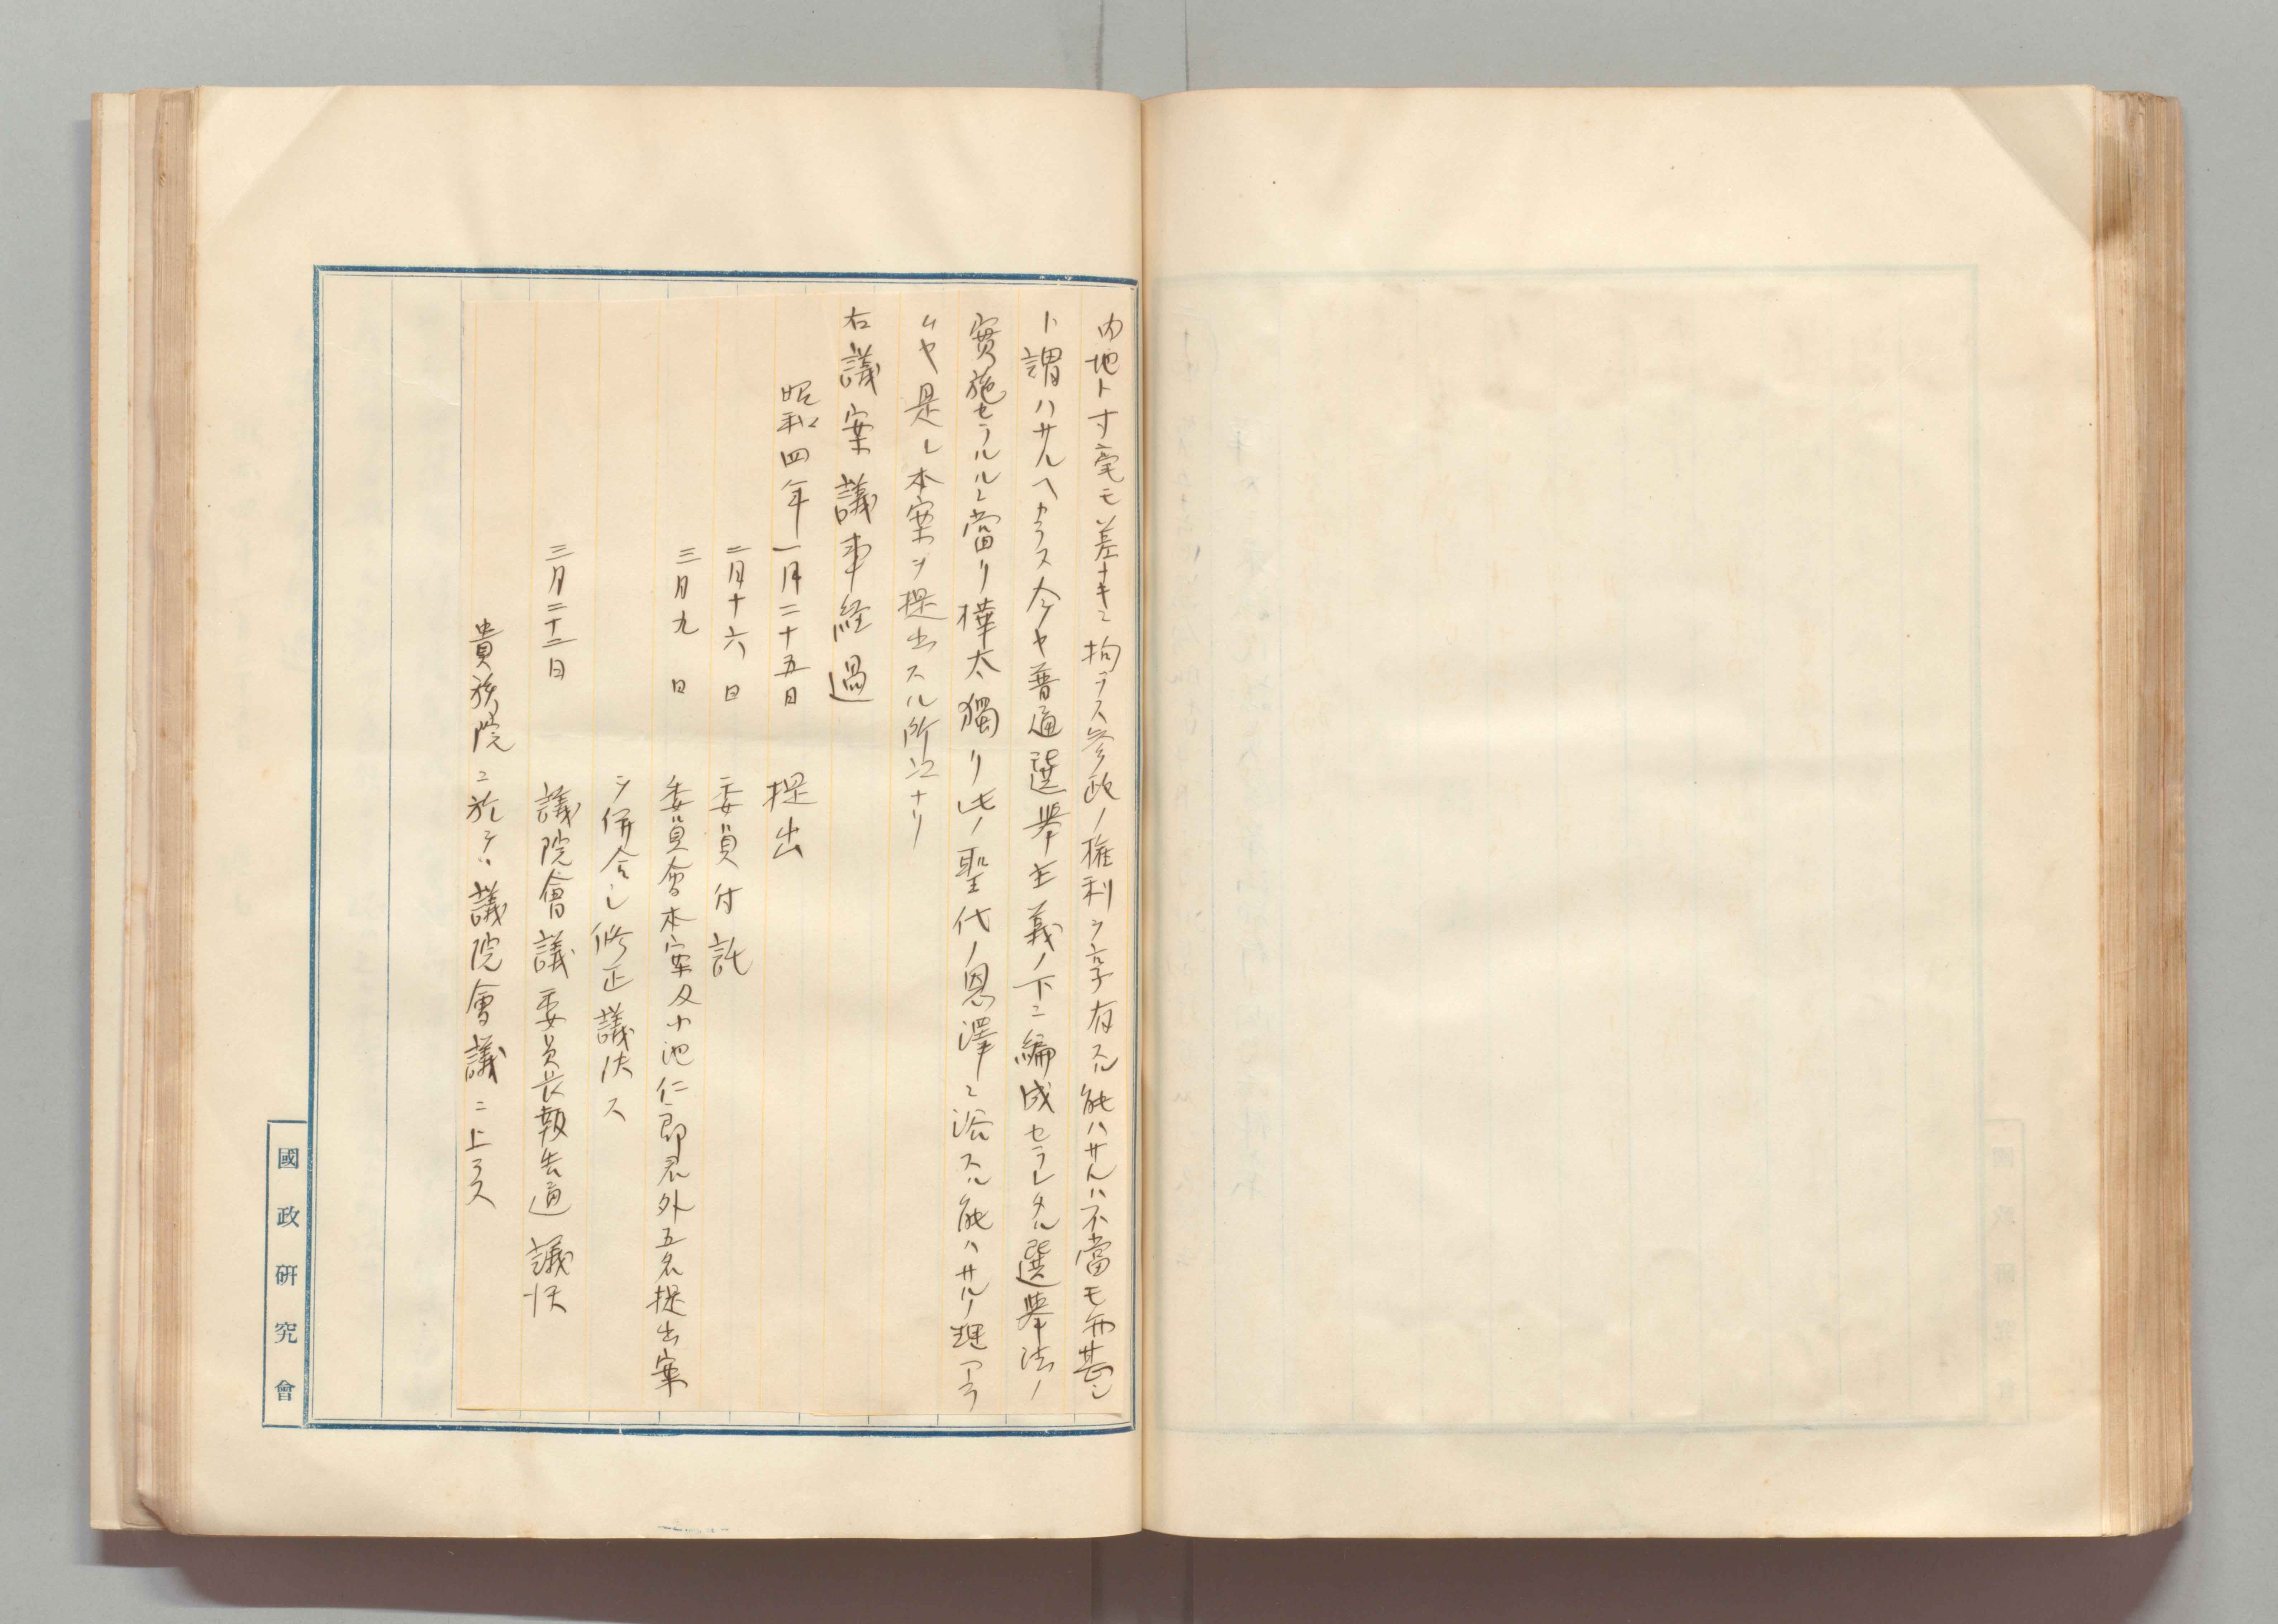 内地ト寸毫モ差ナキニ拘ラス參政ノ權利ヲ享有スル能ハサルハ不當モ亦甚シ
ト謂ハサルヘカラス今ヤ普通選擧主義ノ下ニ編成セラレタル選擧法ノ
實施セラルルニ當リ樺太獨リ此ノ聖代ノ恩澤ニ浴スル能ハサルノ理アラ
ムヤ是レ本案ヲ提出スル所以ナリ
右議案議事経過
昭和四年一月二十五日 提出
二月十六日 委員付託
三月九日 委員會本案及小池仁郎君外五名提出案
ヲ併合シ修正議決ス
三月二十二日 議院會議委員長報告通議決
貴族院ニ於テハ議院會議ニ上ラス
國政研究會